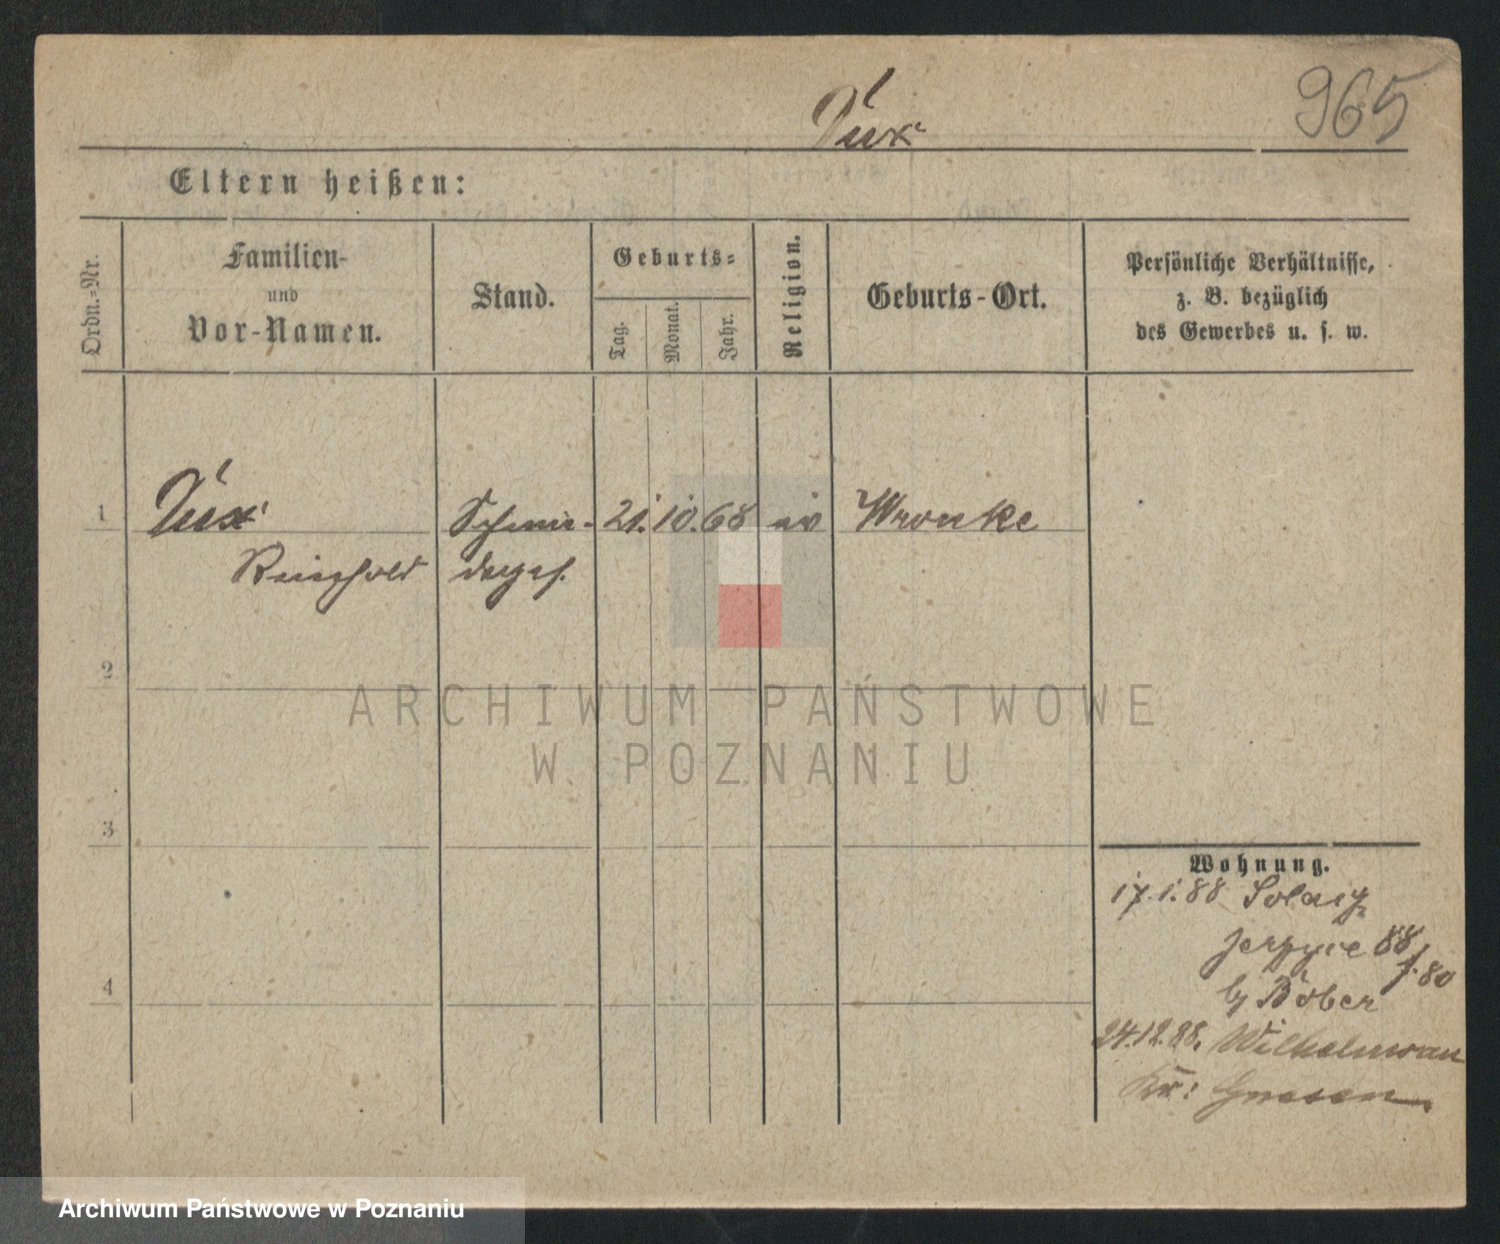 965
Eltern heißen:
Ordn.=Nr.
Familien-
und
Vor-Namen.
Stand.
Geburts=
Tag.
Monat.
Jahr.
Religion.
Geburts-Ort.
Persönliche Verhältnisse,
z. B. bezüglich
des Gewerbes u. s. w.
1
Schmie-
21. 10. 68
ev
Wronke
Reinhold
deges.
2
3
4
Wohnung.
17.1.88
88
f. 80
Bober
24.12.88. Wilhelmsau
Kr: Gnesen
ARCHIWUM PAŃSTWOWE
W POZNANIU
Archiwum Państwowe w Poznaniu